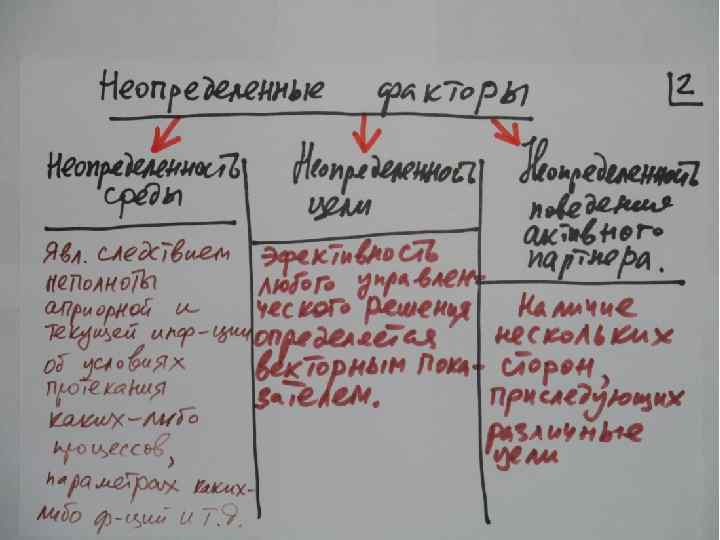 Неопределенные факторы
2
Неопределенность
среды
Явл. следствием
неполноты
априорной и
текущей инф-ции
об условиях
протекания
каких-либо
процессов,
параметрах каких-
либо ф-ций и т.д.
Неопределенность
цели
Эфективность
любого управлен-
ческого решения
определяется
векторным пока-
зателем.
Неопределенность
поведения
активного
партнера.
Наличие
нескольких
сторон,
приследующих
различные
цели